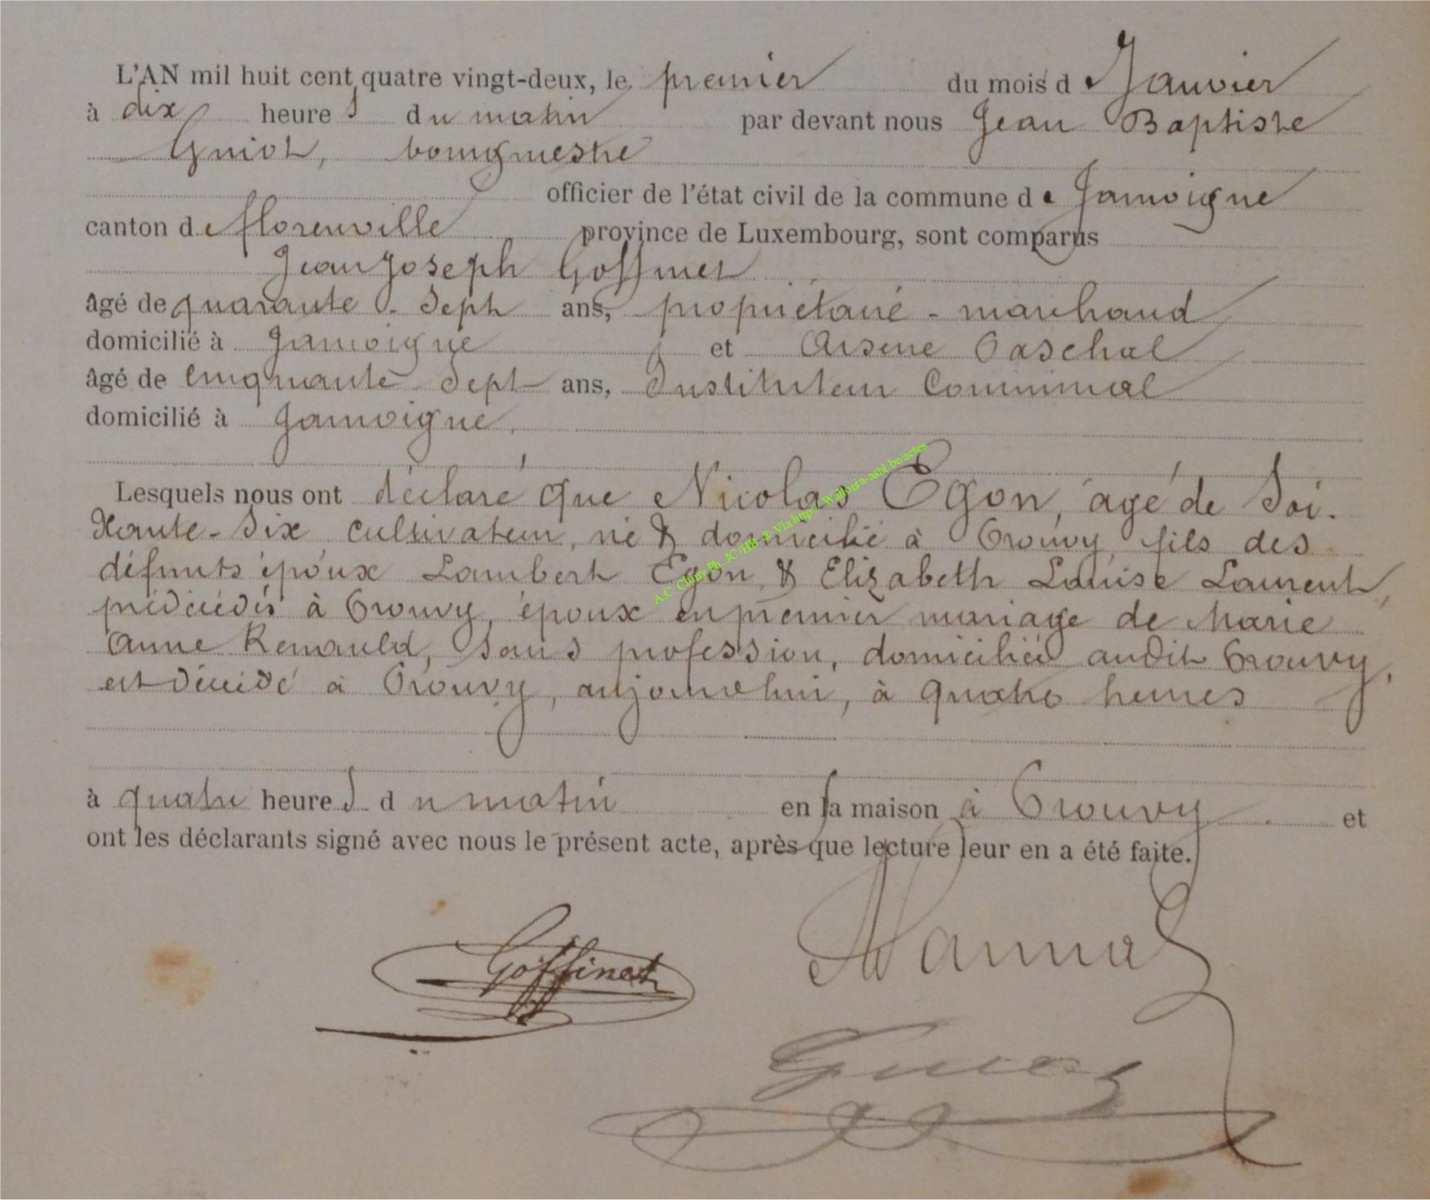 L'AN mil huit cent quatre vingt-deux, le premier du mois de Janvier
à dix heures du matin par devant nous Jean Baptiste
Guiot, bourgmestre
officier de l'état civil de la commune de Jamoigne
canton de florenville province de Luxembourg, sont comparus
Jean Joseph Goffinet
âgé de quarante-sept ans, propriétaire - marchand
domicilié à Jamoigne et Arsène Paschal
âgé de Cinquante Sept ans, Instituteur Communal
domicilié à Jamoigne.
Lesquels nous ont déclaré que Nicolas Egon, âgé de Soi-
xante-Six cultivateur, né & domicilié à Prouvy, fils des
défunts époux Lambert Egon & Elizabeth Louise Laurent,
prédécédés à Prouvy, époux en premier mariage de Marie
Anne Renauld, sans profession, domiciliée audit Prouvy,
est décédé à Prouvy, aujourd'hui, à quatre heures
à quatre heures du matin en sa maison à Prouvy et
ont les déclarants signé avec nous le présent acte, après que lecture leur en a été faite.
Goffinet
Guiot